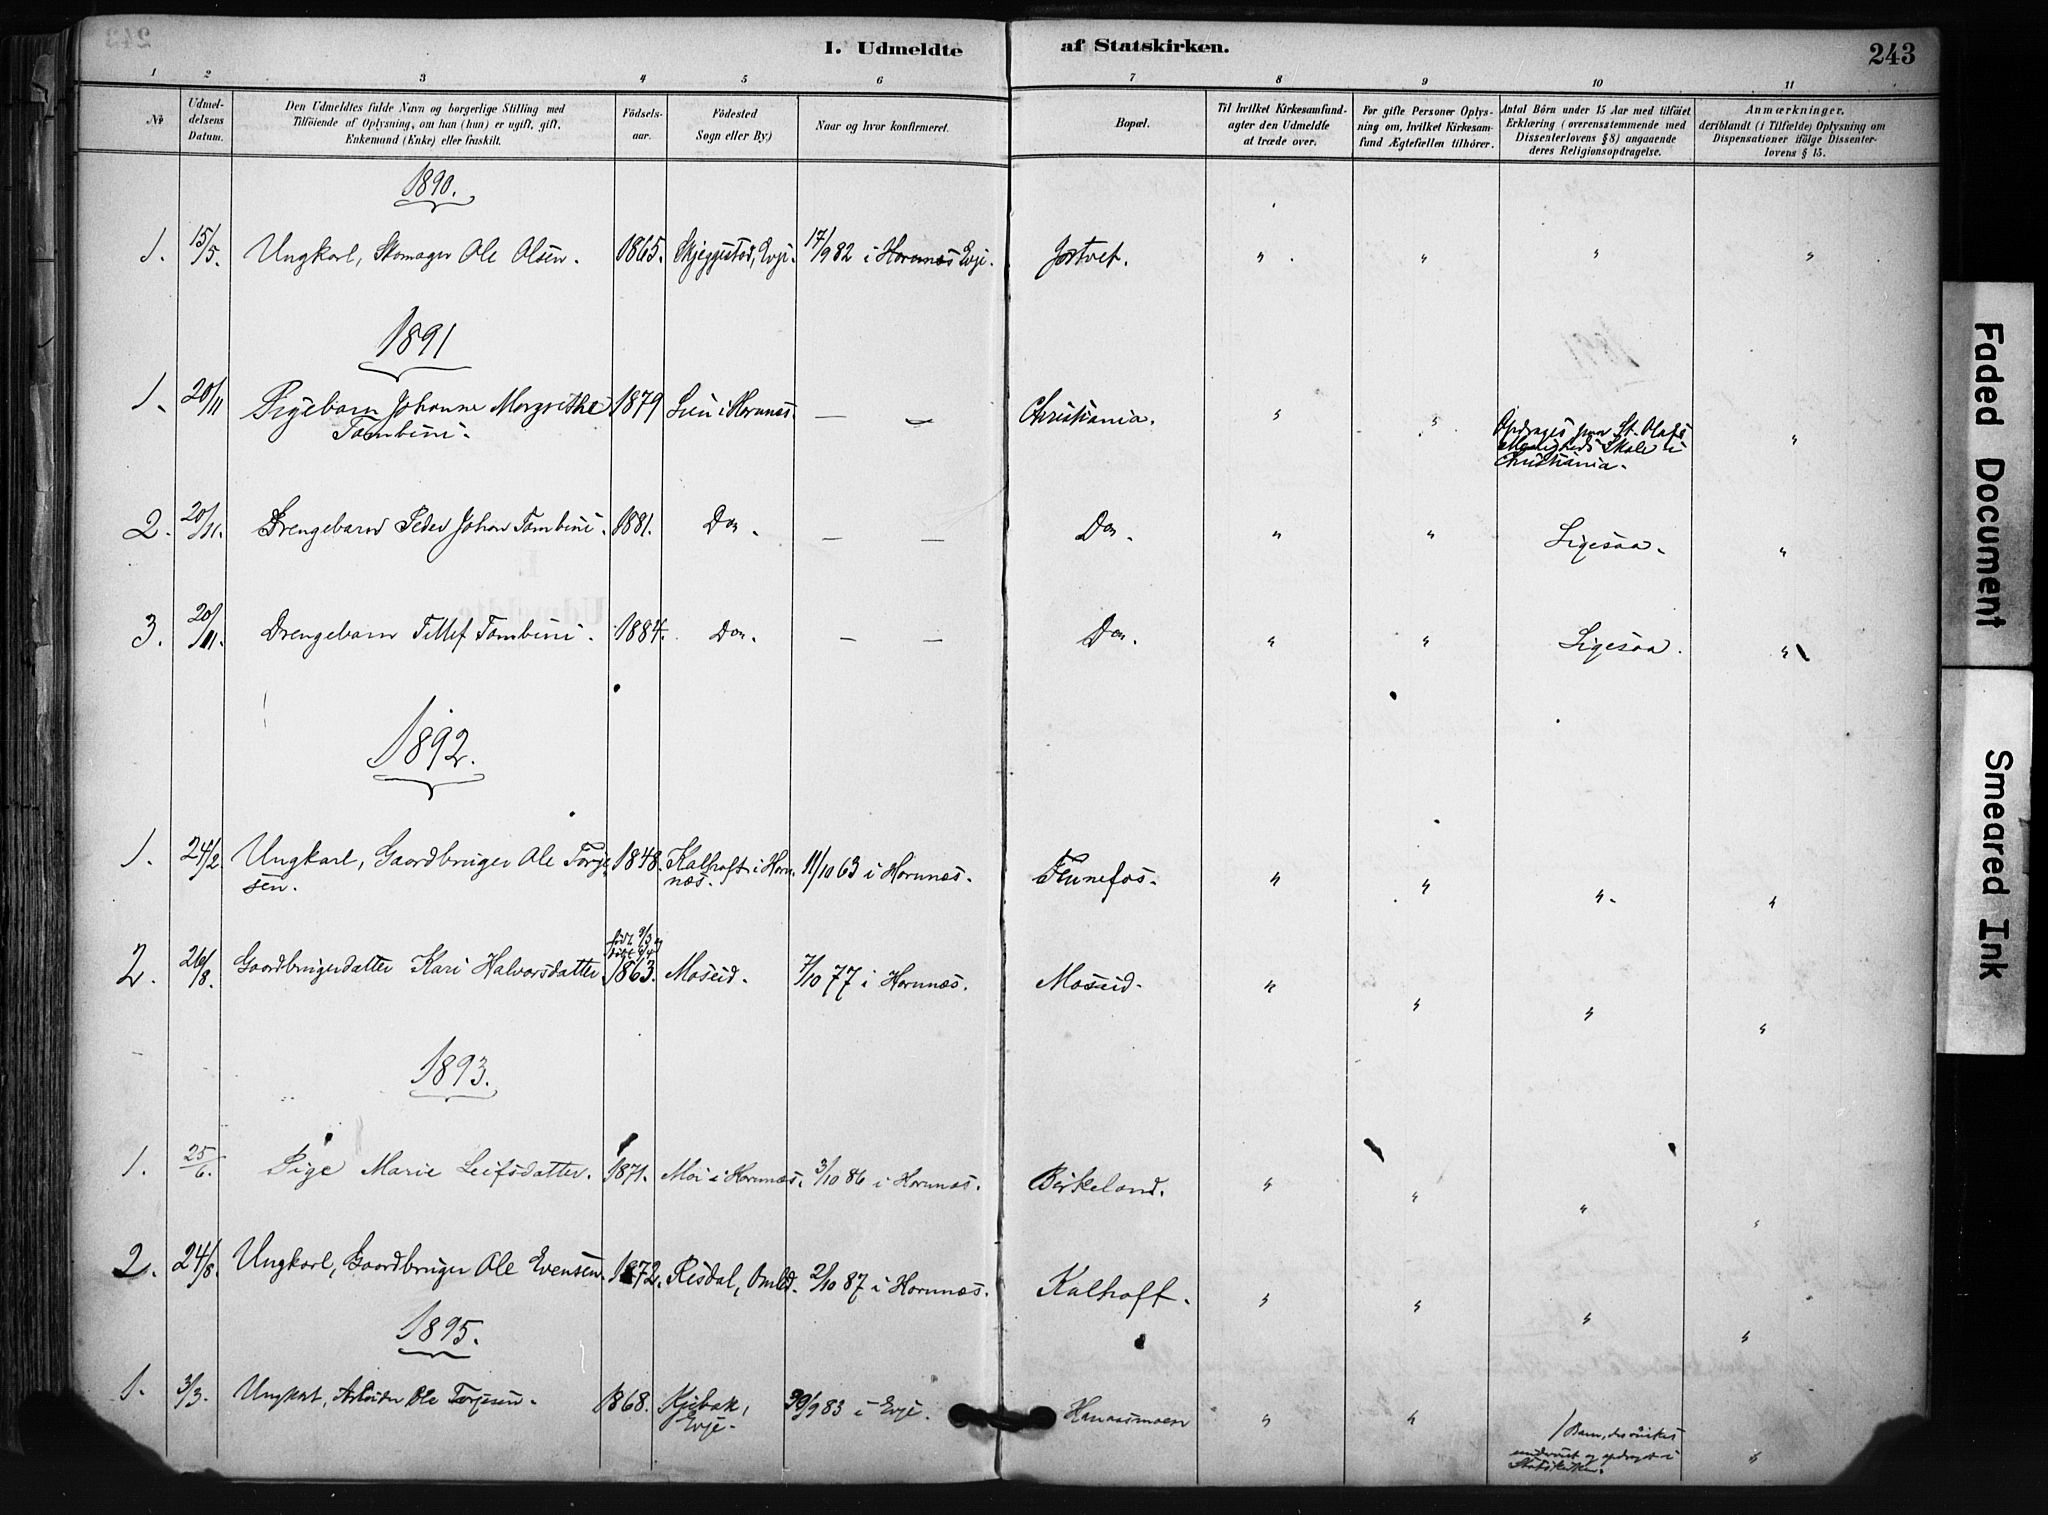 I. Udmeldte af Statskirken. 243
1 2 3 4 5 6 7 8 9 10 11
No
Udmeldelsens Datum.
Den Udmeldtes fulde Navn og borgerlige Stilling med
Tilføiende af Oplysning, om han (hun) er ugift, gift,
Enkemand (Enke) eller fraskilt.
Fødselsaar.
Fødested
Sogn eller By)
Naar og hvor konfirmeret.
Bopæl.
Til hvilket Kirkesamfund-
agter den Udmeldte
at træde over.
For gifte Personer Oplys-
ning om, hvilket Kirkesam-
fund Ægtefællen tilhører.
Antal Børn under 15 Aar med tilføiet
Erklæring (overensstemmende med
Dissenterlovens § 8) angaaende
deres Religionsopdragelse.
Anmærkninger,
deriblandt (i Tilfælde) Oplysning om
Dispensationer ifølge Dissenter-
lovens § 15.
1890.
1. 15/5. Ungkarl, Skomager Ole Olsen. 1865. Skjeggestad, Evje. 17/9 82 i Hornnes Evje. Jortvet. " " " "
1891
1. 20/11 Pigebarn Johanne Margrithe 1879 Lien i Hornnæs. — — Christiania. " " Opdrages paa St. Olafs "
Tambini. Menigheds Skole i
Christiania.
2. 20/11. Drengebarn Peder Johan Tambini. 1881. Do. — — Do. " " Ligesaa. "
3. 20/11. Drengebarn Tellef Tambini. 1884. Do. — — Do. " " Ligesaa. "
1892.
1. 24/2 Ungkarl, Gaardbruger Ole Torje 1848. Kalhoft i Horn 11/10 63 i Hornnæs. Fennefos. " " " "
sen. næs.
født 9/3
2. 26/8. Gaardbrugerdatter Kari Halvorsdatter 1863. Moseid. 7/10 77 i Hornnæs. Moseid. " " " "
1893.
1. 25/6. Pige Marie Leifsdatter. 1871. Moi i Hornnæs. 3/10 86 i Hornnæs. Birkeland. " " " "
2. 24/8. Ungkarl, Gaardbruger Ole Evensen. 1872. Risdal, Omld. 2/10 87 i Hornnæs. Kalhoft. " " " "
1895.
1. 3/3. Ungkarl, Arbeider Ole Torjesen. 1868. Kjebak, 30/9 83 i Evje. Hanaasmoen " " 1 Barn, der ønskes "
Evje. undervist og opdraget i
Statskirken.
Faded Document
Smeared Ink